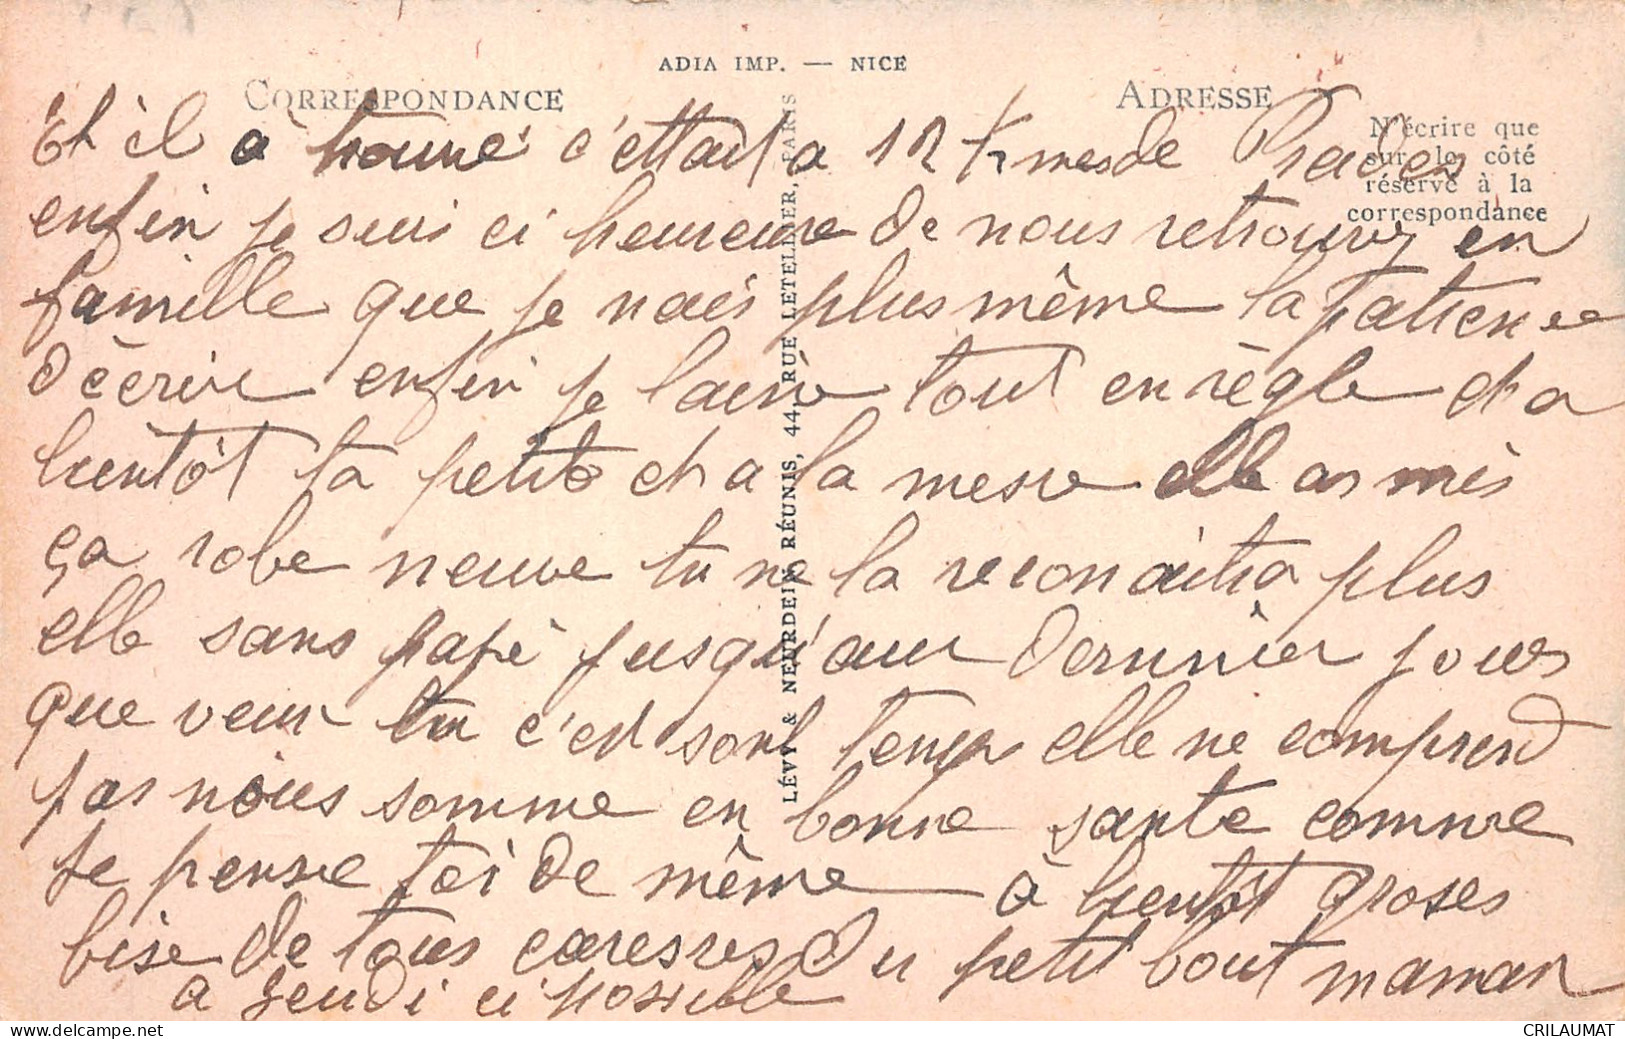 ADIA IMP. — NICE
CORRESPONDANCE
ADRESSE
N'écrire que
sur le côté
réservé à la
correspondance
LÉVY & NEURDEIN RÉUNIS, 44, RUE LETELLIER, PARIS
Et il a trouvé c'ettait a 12 Kmes de Prades
enfin je suis ci heureuse de nous retrouvez en
famille que je nais plus même la patience
d'ècrire enfin je laisse tout en règle et a
bientôt ta petite et a la messe elle as mis
ça robe neuve tu ne la reconaitra plus
elle sans papè jusqu'aux dernnier jours
que veux tu c'est sont temps elle ne comprend
pas nous somme en bonne sante comme
je pense toi de même à bientôt groses
bise de tous caresses du petit bout maman
a jeudi ci possible
CRILAUMAT